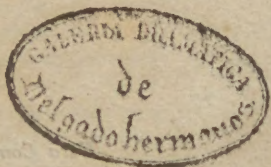 GALERIA DRAMATICA
de
Delgado hermanos